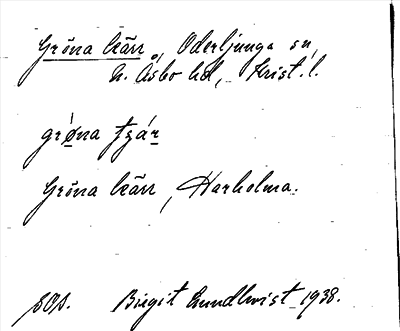 Gröna kärr, Oderljunga sn,
N. Åsbo hd, Krist. l.
Gröna kärr, Harholma.
SOA. Birgit Lundkvist 1938.